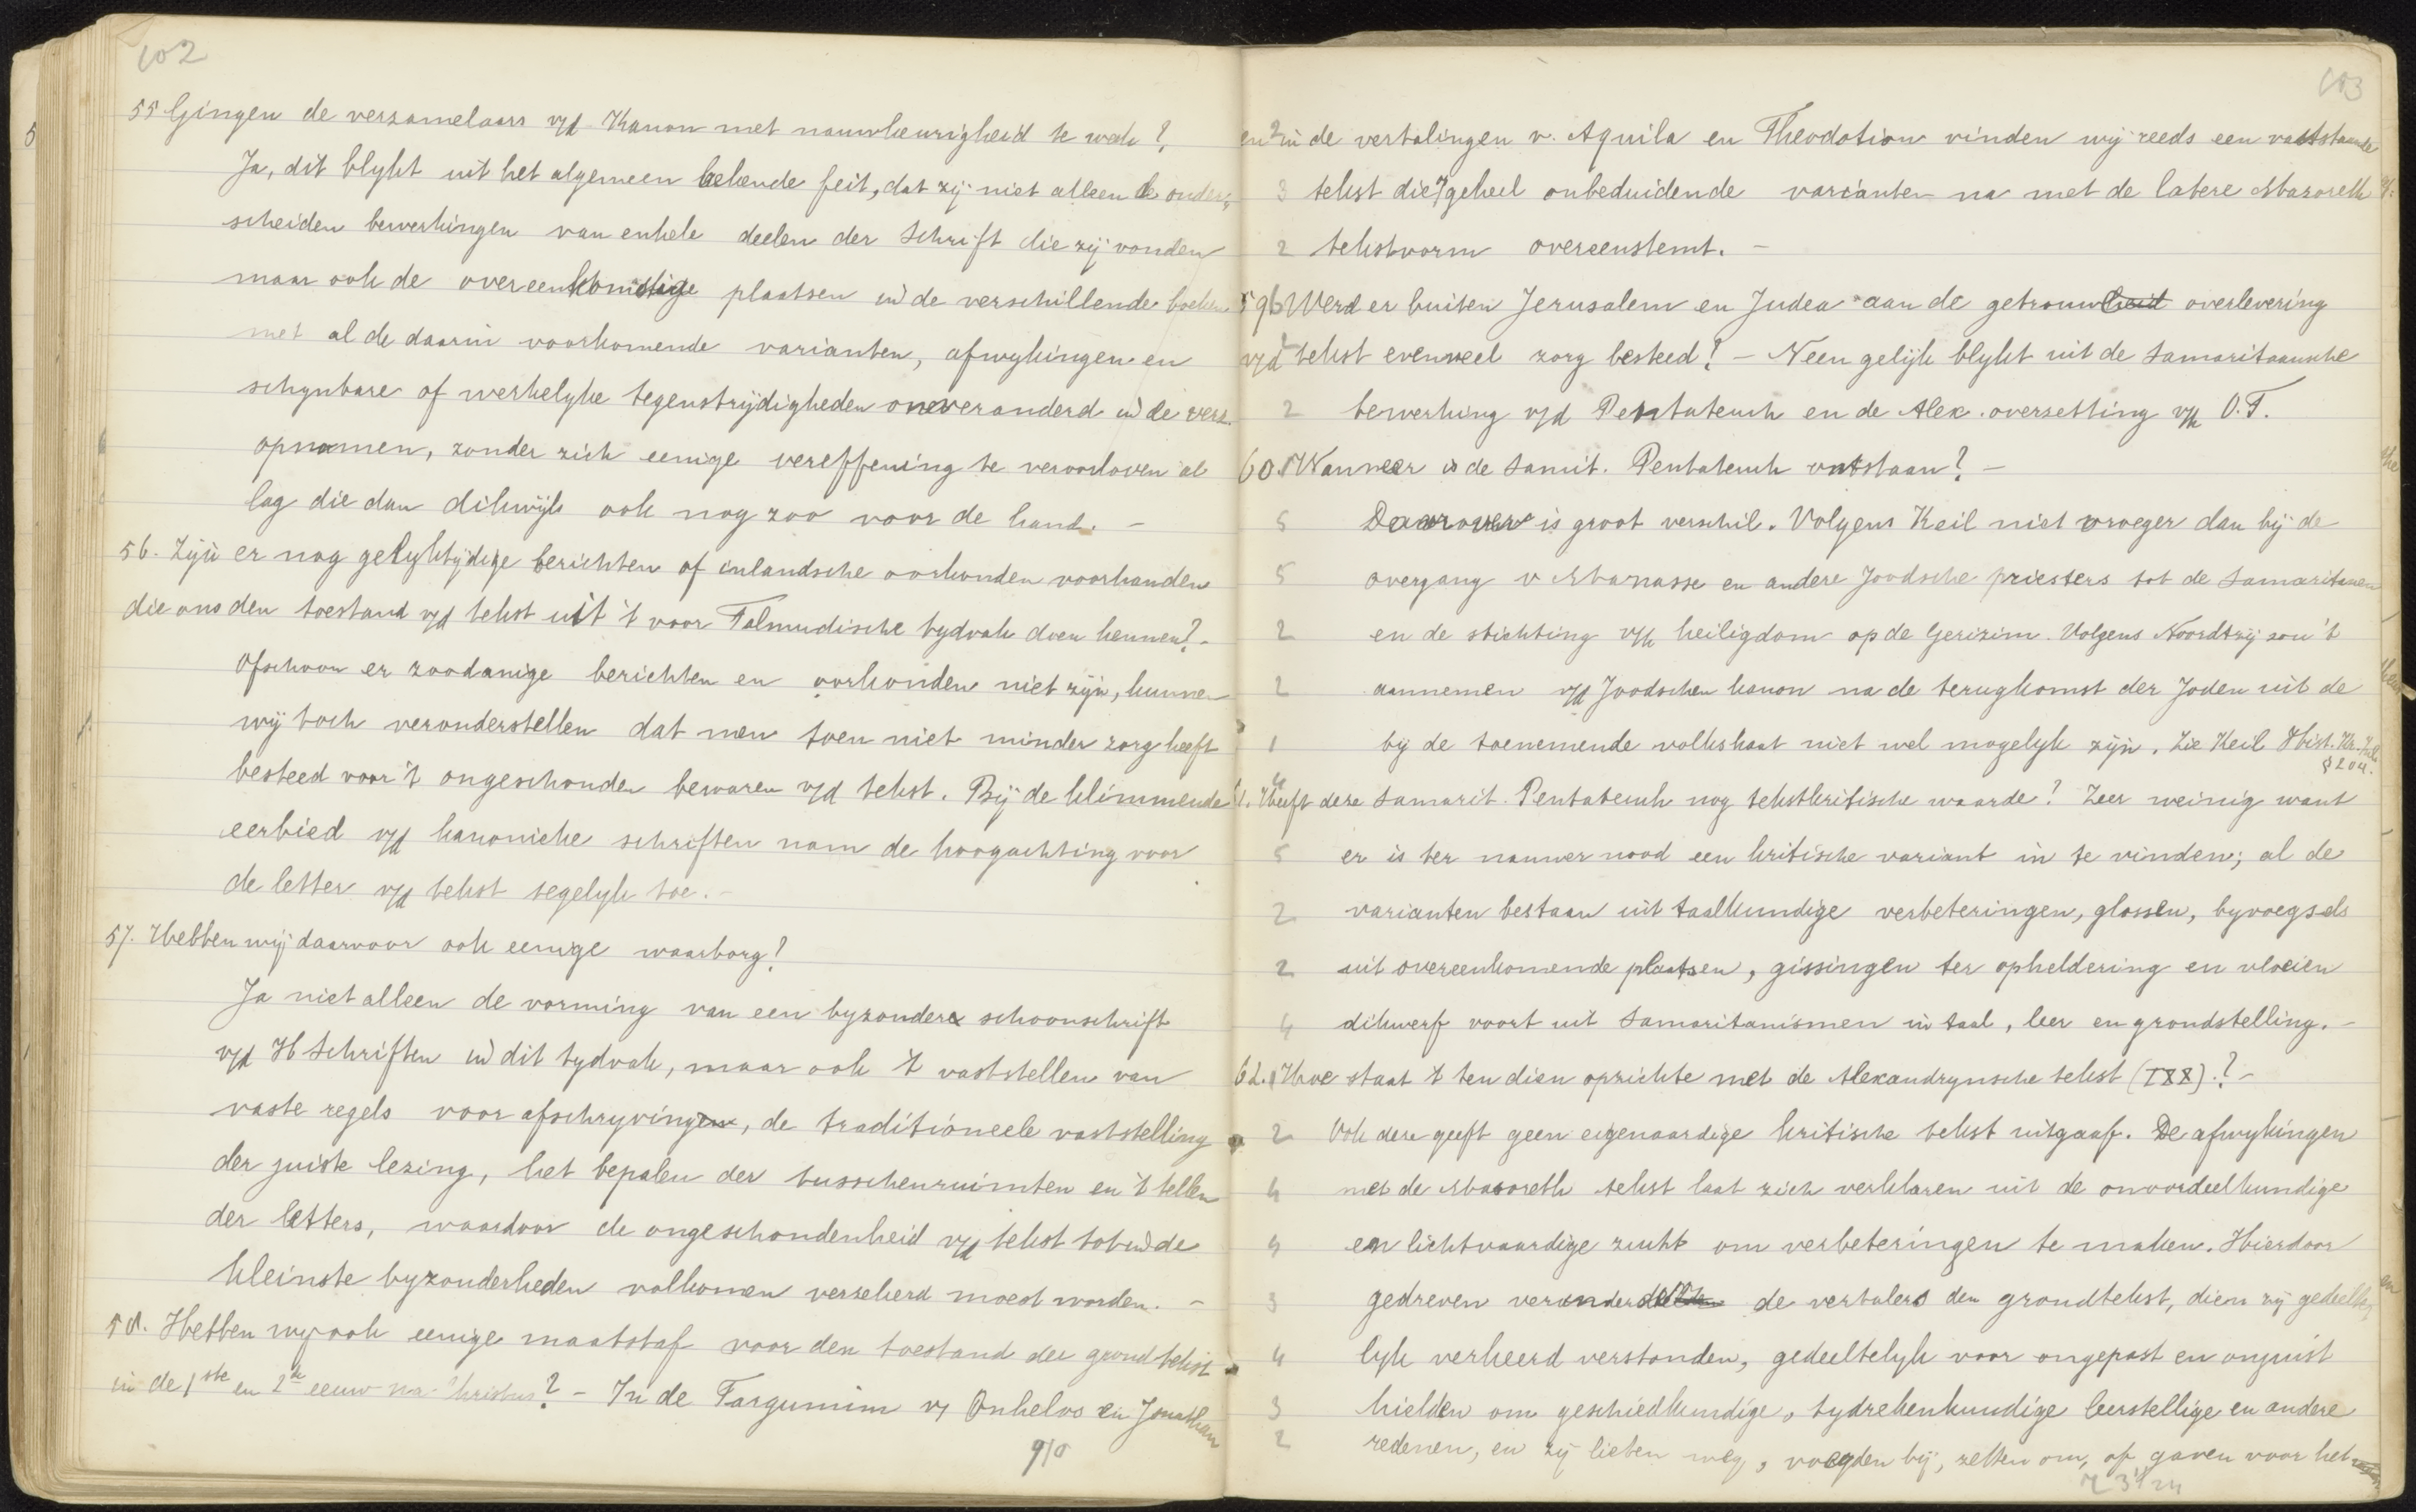 102
55 Gingen de verzamelaars v/d Kanon met nauwkeurigheid te werk?
Ja, dit blykt uit het algemeen bekende feit, dat zij niet alleen de onder-
scheiden bewerkingen van enkele deelen der Schrift die zij vonden
maar ook de overeenkomstige plaatsen in de verschillende boeken
met al de daarin voorkomende varianten, afwykingen en
schynbare of werkelyke tegenstrijdigheden onveranderd in de verz.
opnamen, zonder zich eenige vereffening te veroorloven al
lag die dan dikwijls ook nog zoo voor de hand. -
56. Zijn er nog gelyktydige berichten of inlandsche oorkonden voorhanden
die ons den toestand v/d tekst uit 't voor Talmudische tydvak doen kennen? -
Ofschoon er zoodanige berichten en oorkonden niet zijn, kunnen
wij toch veronderstellen dat men toen niet minder zorg heeft
besteed voor 't ongeschonden bewaren v/d tekst. Bij de klimmende
eerbied v/d kanonieke schriften nam de hoogachting voor
de letter v/d tekst tegelyk toe. -
57. Hebben wij daarvoor ook eenige waarborg?
Ja niet alleen de vorming van een byzondere schoonschrift
v/d H Schriften in dit tydvak, maar ook 't vaststellen van
vaste regels voor afschryvingen, de traditioneele vaststelling
der juiste lezing, het bepalen der tusschenruimten en 't tellen
der letters, waardoor de ongeschondenheid v/d tekst tot in de
kleinste byzonderheden volkomen verzekerd moest worden. -
58. Hebben wy ook eenige maatstaf voor den toestand der grondtekst
in de 1ste en 2de eeuw na Christus? - In de Targumim v/ Onkelos en Jonathan
910
103
en in de vertalingen v. Aquila en Theodotion vinden wij reeds een vaststaande
3 tekst die op geheel onbeduidende varianten na met de latere Masoreth
2 tekstvorm overeenstemt. -
59 Werd er buiten Jerusalem en Judea aan de getrouwheid overlevering
v/d tekst evenveel zorg besteed? - Neen gelijk blykt uit de Samaritaansche
2 bewerking v/d Pentateuch en de Alex. overzetting v/h O.T.
60. Wanneer is de Samit. Pentateuch ontstaan? -
5 Daarover is groot verschil. Volgens Keil niet vroeger dan bij de
5 overgang v Manasse en andere Joodsche priesters tot de Samaritanen
2 en de stichting v/h heiligdom op de Gerizim. Volgens Noordtzij zou 't
2 aannemen v/d Joodschen kanon na de terugkomst der Joden uit de
1 bij de toenemende volkshaat niet wel mogelyk zijn. Zie Keil Hist. Kr.
§ 204.
61. Heeft deze Samarit. Pentateuch nog tekstkritische waarde? Zeer weinig want
5 er is ter nauwer nood een kritische variant in te vinden; al de
2 varianten bestaan uit taalkundige verbeteringen, glossen, byvoegsels
2 uit overeenkomende plaatsen, gissingen ter opheldering en vloeien
4 dikwerf voort uit Samaritanismen in taal, leer en grondstelling. -
62. Hoe staat 't ten dien opzichte met de Alexandrynsche tekst (LXX)? -
2 Ook deze geeft geen eigenaardige kritische tekst uitgaaf. De afwykingen
4 met de Masoreth tekst laat zich verklaren uit de onoordeelkundige
4 en lichtvaardige zucht om verbeteringen te maken. Hierdoor
3 gedreven veranderden de vertalers den grondtekst, dien zij gedeelte-
4 lyk verkeerd verstonden, gedeeltelyk voor ongepast en onjuist
3 hielden om geschiedkundige, tydrekenkundige leerstellige en andere
2 redenen, en zij lieten weg, voegden bij, zetten om, of gaven voor het